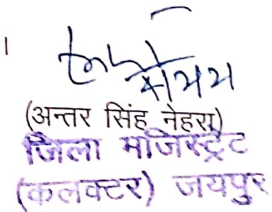 (अन्तर सिंह नेहरा)
जिला मजिस्ट्रेट
(कलक्टर) जयपुर